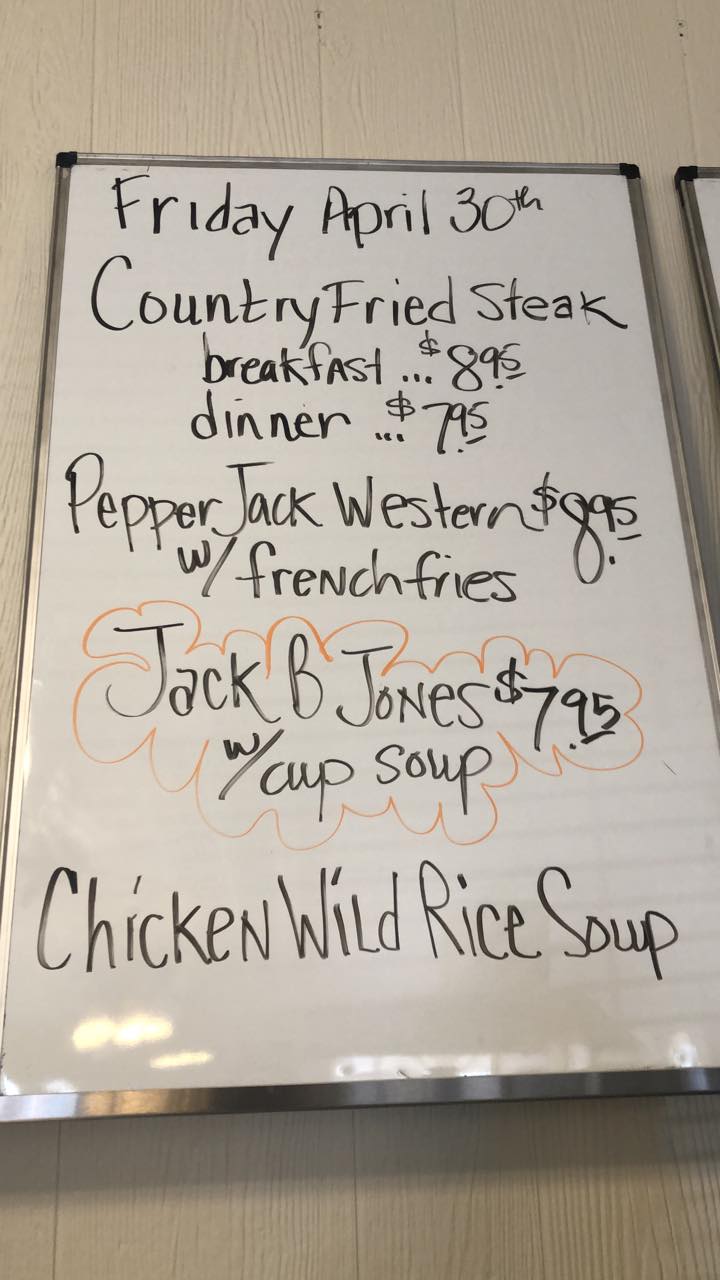 Friday April 30th
Country Fried Steak
breakfast ... $8.95
dinner ... $7.95
Pepper Jack Western $8.95
w/ french fries
Jack B Jones $7.95
w/ cup soup
Chicken Wild Rice Soup